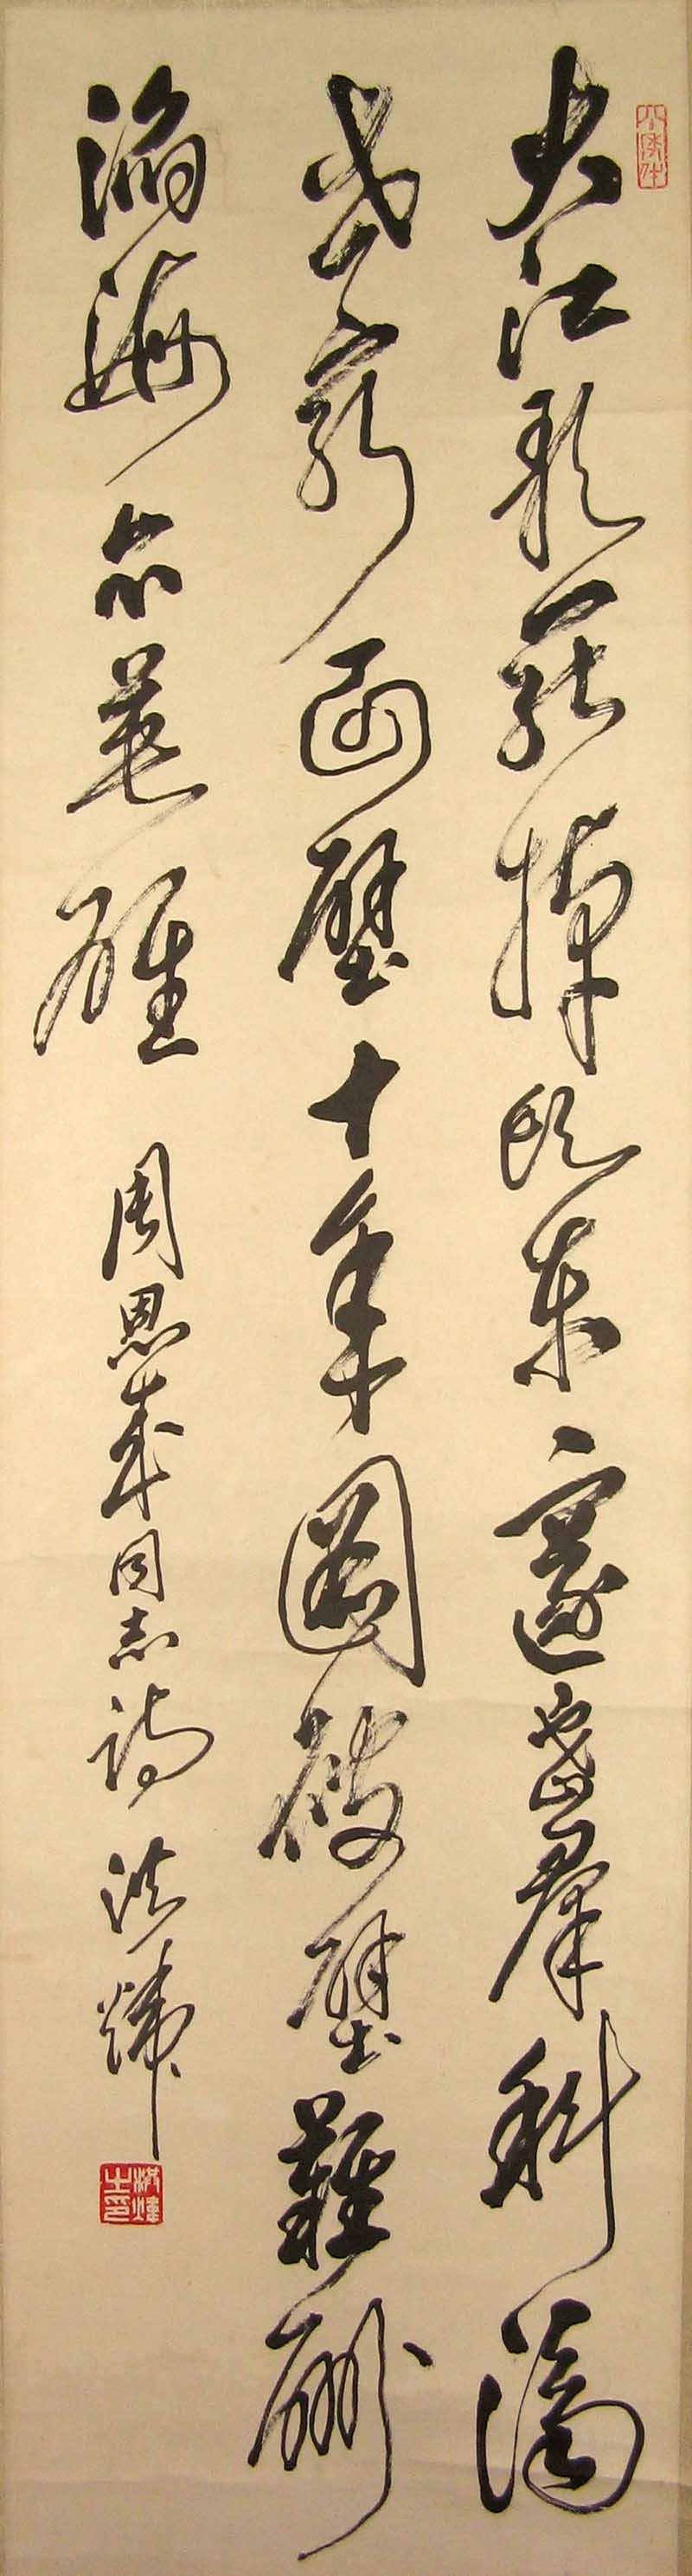 大江歌罷掉頭東邃密羣科濟
世窮面壁十年圖破壁難酬
蹈海亦英雄 周恩來同志詩 洪煒
洪煒之印